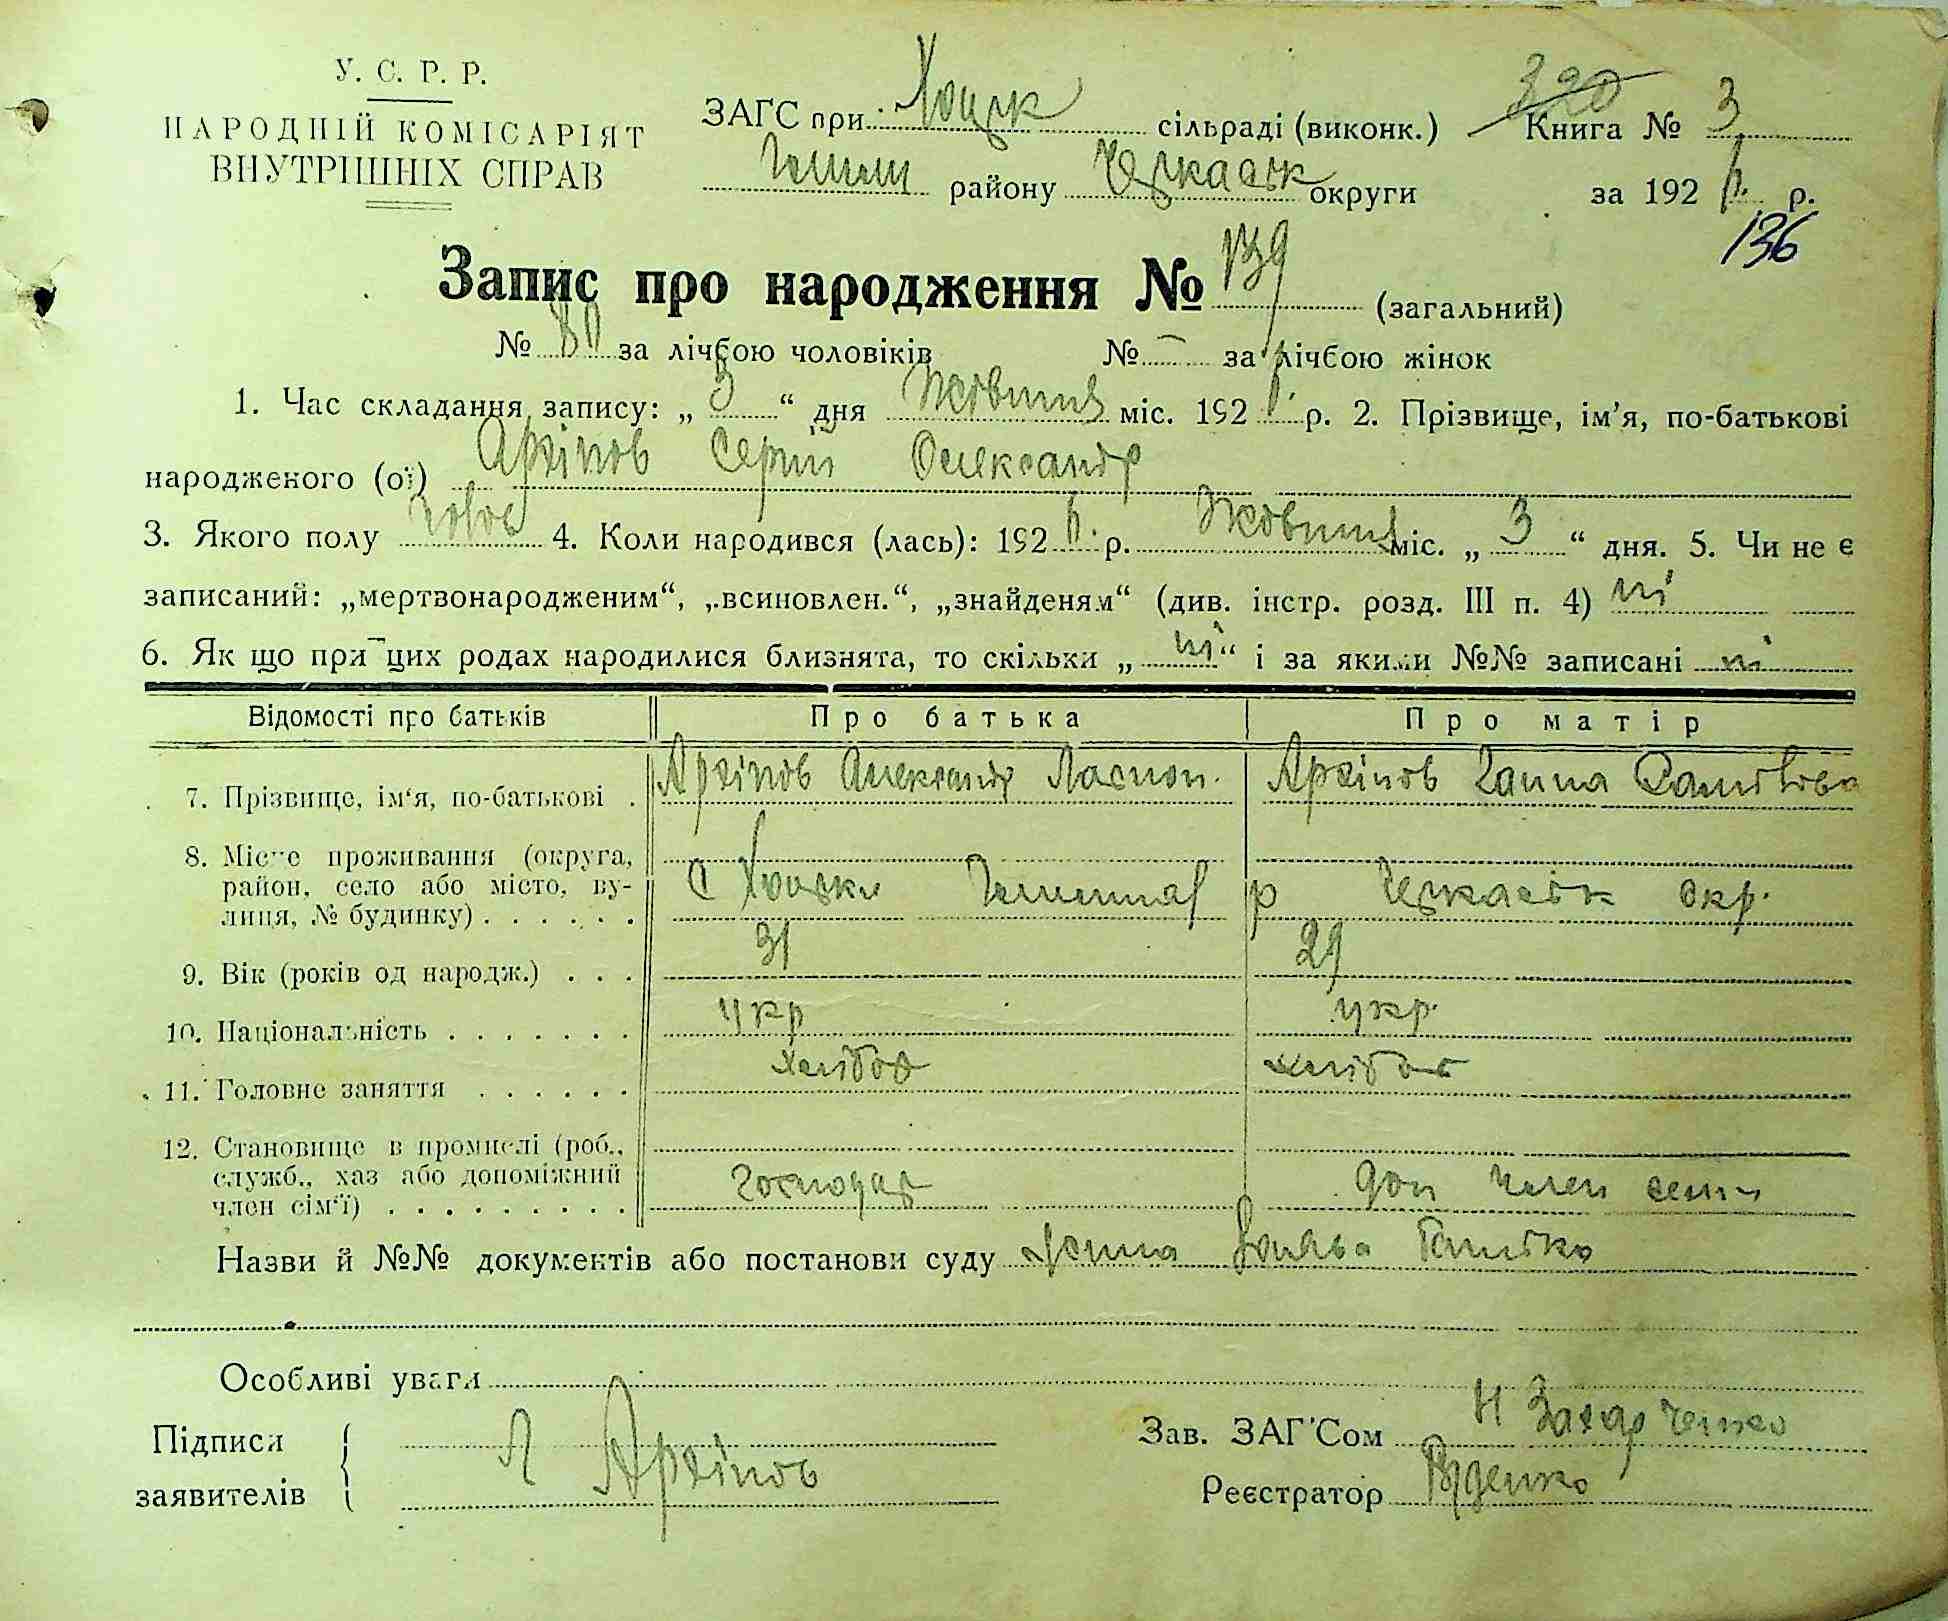 У. С. Р. Р.
НАРОДНІЙ КОМІСАРІЯТ
ВНУТРІШНІХ СПРАВ
ЗАГС при Хоцьк сільраді (виконк.)
320
Книга № 3
району Черкаськ округи
за 192 р.
136
Запис про народження № 139 (загальний)
№ 80 за лічбою чоловіків № – за лічбою жінок
1. Час складання запису: „ 3 “ дня Жовтня міс. 192 р. 2. Прізвище, ім’я, по-батькові
народженого (ої) Архіпов Сергій Олександр
3. Якого полу чолов 4. Коли народився (лась): 192 р. Жовтня міс. „ 3 “ дня. 5. Чи не є
записаний: „мертвонародженим“, „всиновлен.“, „знайденям“ (див. інстр. розд. III п. 4) ні
6. Як що при цих родах народилися близнята, то скільки „ ні “ і за якими №№ записані ні
Відомості про батьків Про батька Про матір
7. Прізвище, ім‘я, по-батькові . Архіпов Олександр Архіпов Ганна
8. Місце проживання (округа,
район, село або місто, ву-
лиця, № будинку) . . . . . . С Хоцьки р Черкаськ окр.
9. Вік (років од народж.) . . . 31 29
10. Національність . . . . . . . укр укр.
11. Головне заняття . . . . . . хлібоб хлібоб
12. Становище в промислі (роб.,
служб., хаз або допоміжний
член сім‘ї) . . . . . . . . . Господар доп член семи
Назви й №№ документів або постанови суду
Особливі уваги
Підписи
заявителів
Л Архіпов
Зав. ЗАГ’Сом Н Захарченко
Реєстратор Руденко